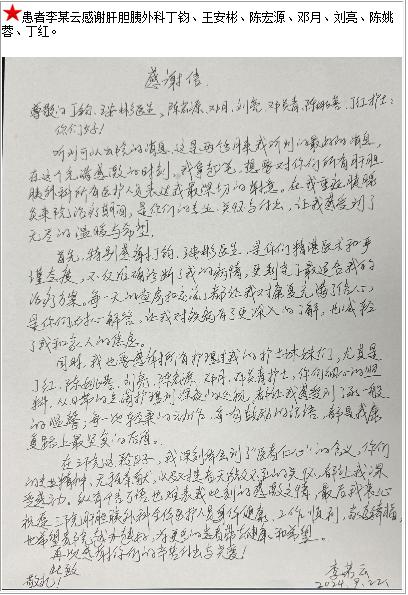 患者李某云感谢肝胆胰外科丁钧、王安彬、陈宏源、邓月、刘亮、陈姚
蓉、丁红。
感谢信
尊敬的丁钧、王安彬医生，陈宏源、邓月、刘亮、邓 陈姚蓉、丁红护士：
你们好！
听到可以出院的消息，这是两个月来我听到的最好的消息，
在这个充满感激的时刻，我拿起笔，想要对你们所有肝胆
胰外科所有医护人员表达我最深切的谢意。在我 胰腺
炎来院治疗期间，是你们的专业、关怀与付出，让我感受到了
无尽的温暖与希望。
首先，特别感谢丁钧、王安彬医生，是你们精湛医术和严
谨态度，不仅准确诊断了我的病情，更制定了最适合我的
治疗方案。每一天的查房和会诊，都给我对康复充满了信心，
是你们的耐心解答，让我对疾病有了更深入的了解，也减轻
了我和家人的焦虑。
同时，我也要感谢所有护理过我的护士妹妹们，尤其是
丁红、陈姚蓉、刘亮、陈宏源、邓月、邓 护士，你们细心的照
料，从日常的生活护理到深夜的 ，都让我感受到了家一般
的温馨；每一次轻柔的动作，每一句鼓励的话语，都是我康
复路上最坚实的后盾。
在 院这段日子，我深刻体会到了“医者仁心”的含义，你们
的专业精神、无私奉献，以及对患者无微不至的关怀，都让我深
受感动，纵有千言万语也难表我此刻的感激之情，最后我衷心
祝愿 院肝胆胰外科全体医护人员身体健康，工作顺利，家庭幸福，
也希望 越办越好，为更多的患者带去健康和希望。
再次感谢你们的辛苦付出与关爱！
此致
敬礼！
李某云
2024.9.22.